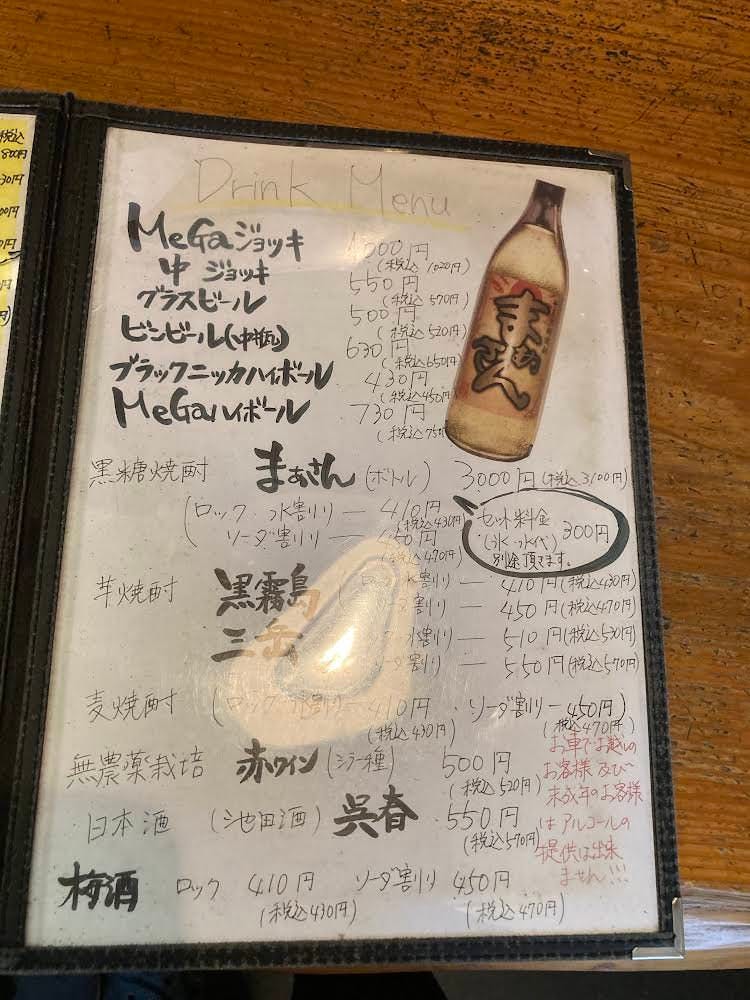 税込
800円
Drink Menu
MeGaジョッキ 1000円
(税込1020円)
中ジョッキ 550円
(税込570円)
グラスビール 500円
(税込520円)
ビンビール(中瓶) 630円
(税込650円)
ブラックニッカハイボール 430円
(税込450円)
MeGaハイボール 730円
(税込75
まぁさん
黒糖焼酎 まぁさん (ボトル) 3000円(税込3100円)
(ロック・水割り― 410円
(税込430円)
ソーダ割り― 450円
(税込470円)
セット料金
(氷・水代) 300円
別途頂きます。
芋焼酎 黒霧島 (ロック・水割り ― 410円(税込430円)
ソーダ割り ― 450円(税込470円)
三岳 水割り ― 510円(税込530円)
ソーダ割り ― 550円(税込570円)
麦焼酎 (ロック・水割り― 410円・ソーダ割り―450円)
(税込430円) (税込470円)
無農薬栽培 赤ワイン(シラー種) 500円
(税込520円)
日本酒 (池田酒) 呉春 550円
(税込570円)
梅酒 ロック 410円 ソーダ割り 450円
(税込430円) (税込470円)
お車でお越しの
お客様及び
未成年のお客様
はアルコールの
提供は出来
ません!!!